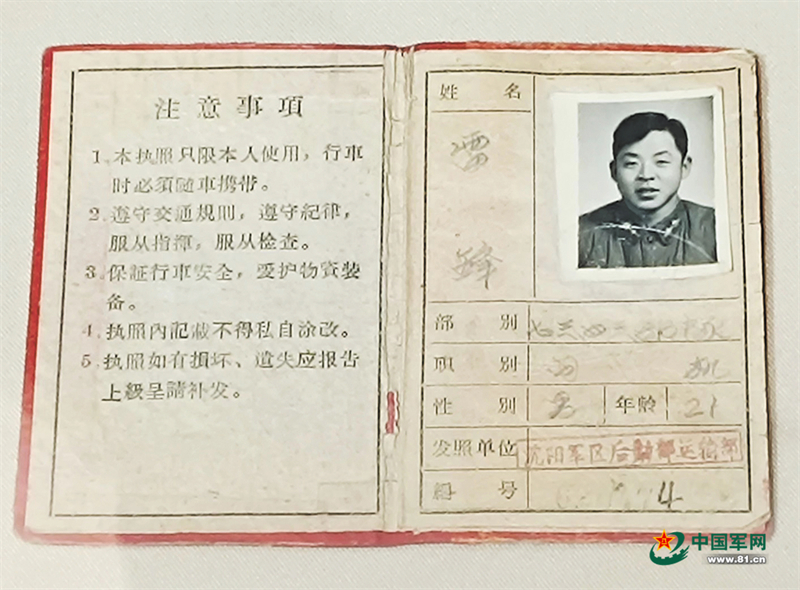 注意事項
1、本执照只限本人使用，行車
时必須随車携带。
2、遵守交通規則，遵守紀律，
服从指揮，服从检查。
3、保証行車安全，爱护物資装
备。
4、执照內記載不得私自涂改。
5、执照如有損坏、遺失应报告
上級呈請补发。
姓名
雷
锋
部别
职别 司机
性别 男 年龄 21
发照单位 沈阳军区后勤部运输部
編号 4
中国军网
www.81.cn